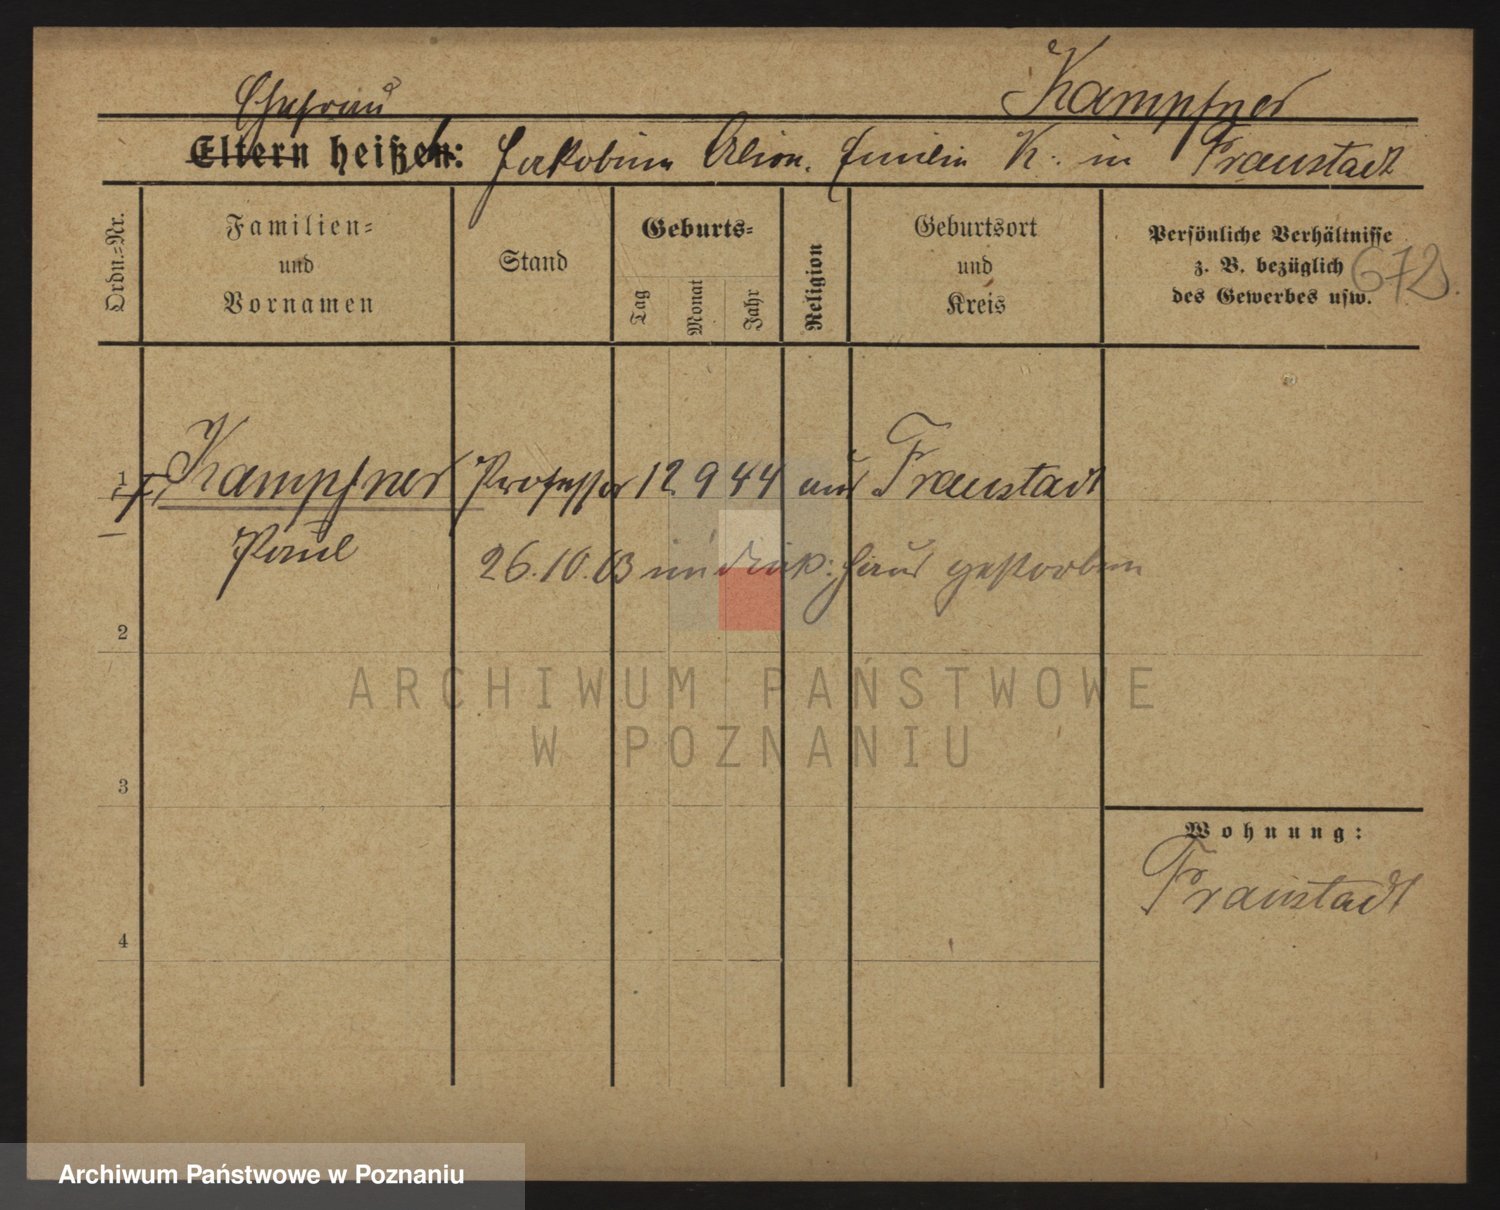 Kampfner
Ehefrau
Eltern heißen: Jakobina Emilia K. in Fraustadt
Ordn.-Nr.
Familien-
und
Vornamen
Stand
Geburts-
Tag
Monat
Jahr
Religion
Geburtsort
und
Kreis
Persönliche Verhältnisse
z. B. bezüglich
des Gewerbes usw.
672
1 Kampfner Professor 12 9 44 aus Fraustadt
Paul
26.10.03 im gestorben
2
ARCHIWUM PAŃSTWOWE
W POZNANIU
3
Wohnung:
Fraustadt
4
Archiwum Państwowe w Poznaniu